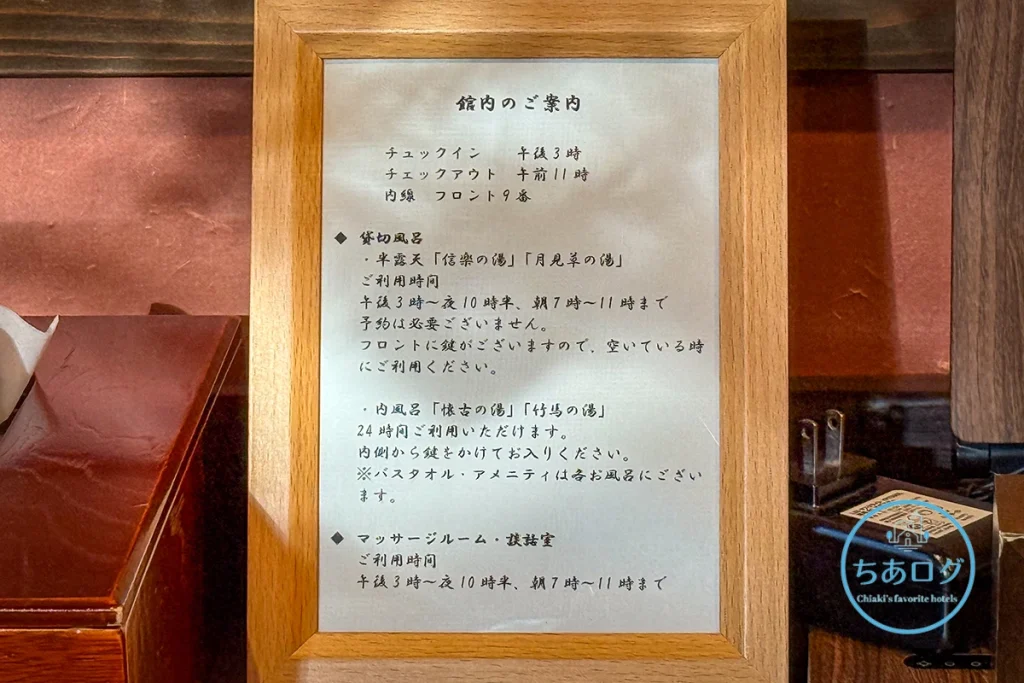 館内のご案内
チェックイン　午後3時
チェックアウト　午前11時
内線　フロント9番
◆ 貸切風呂
・半露天「信楽の湯」「月見草の湯」
ご利用時間
午後3時～夜10時半、朝7時～11時まで
予約は必要ございません。
フロントに鍵がございますので、空いている時
にご利用ください。
・内風呂「懐古の湯」「竹馬の湯」
24時間ご利用いただけます。
内側から鍵をかけてお入りください。
※バスタオル・アメニティは各お風呂にござい
ます。
◆ マッサージルーム・談話室
ご利用時間
午後3時～夜10時半、朝7時～11時まで
ちあログ
Chiaki's favorite hotels